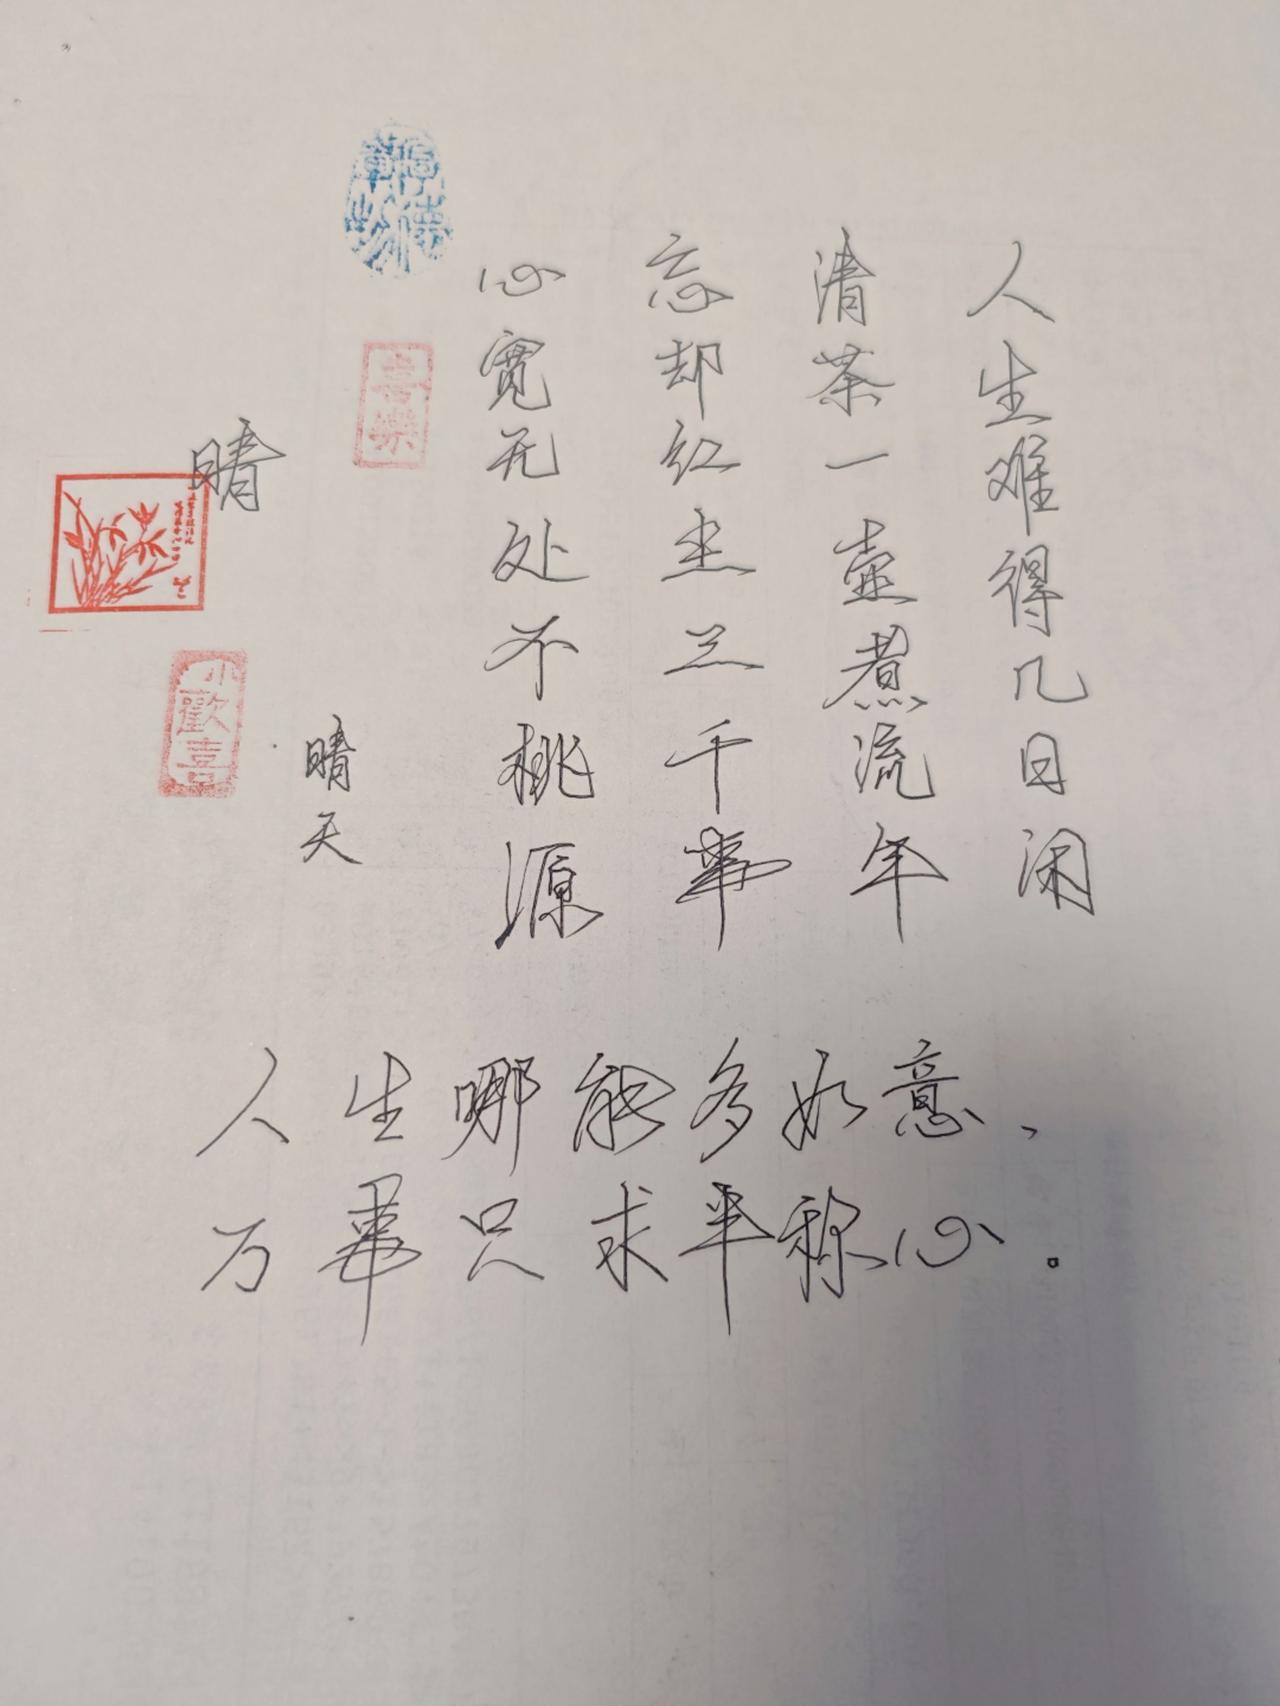 人生难得几日闲
清茶一壶煮流年
忘却红尘三千事
心宽无处不桃源
晴天
晴
厚德
载物
喜樂
小歡喜
人生哪能多如意、
万事只求半称心。